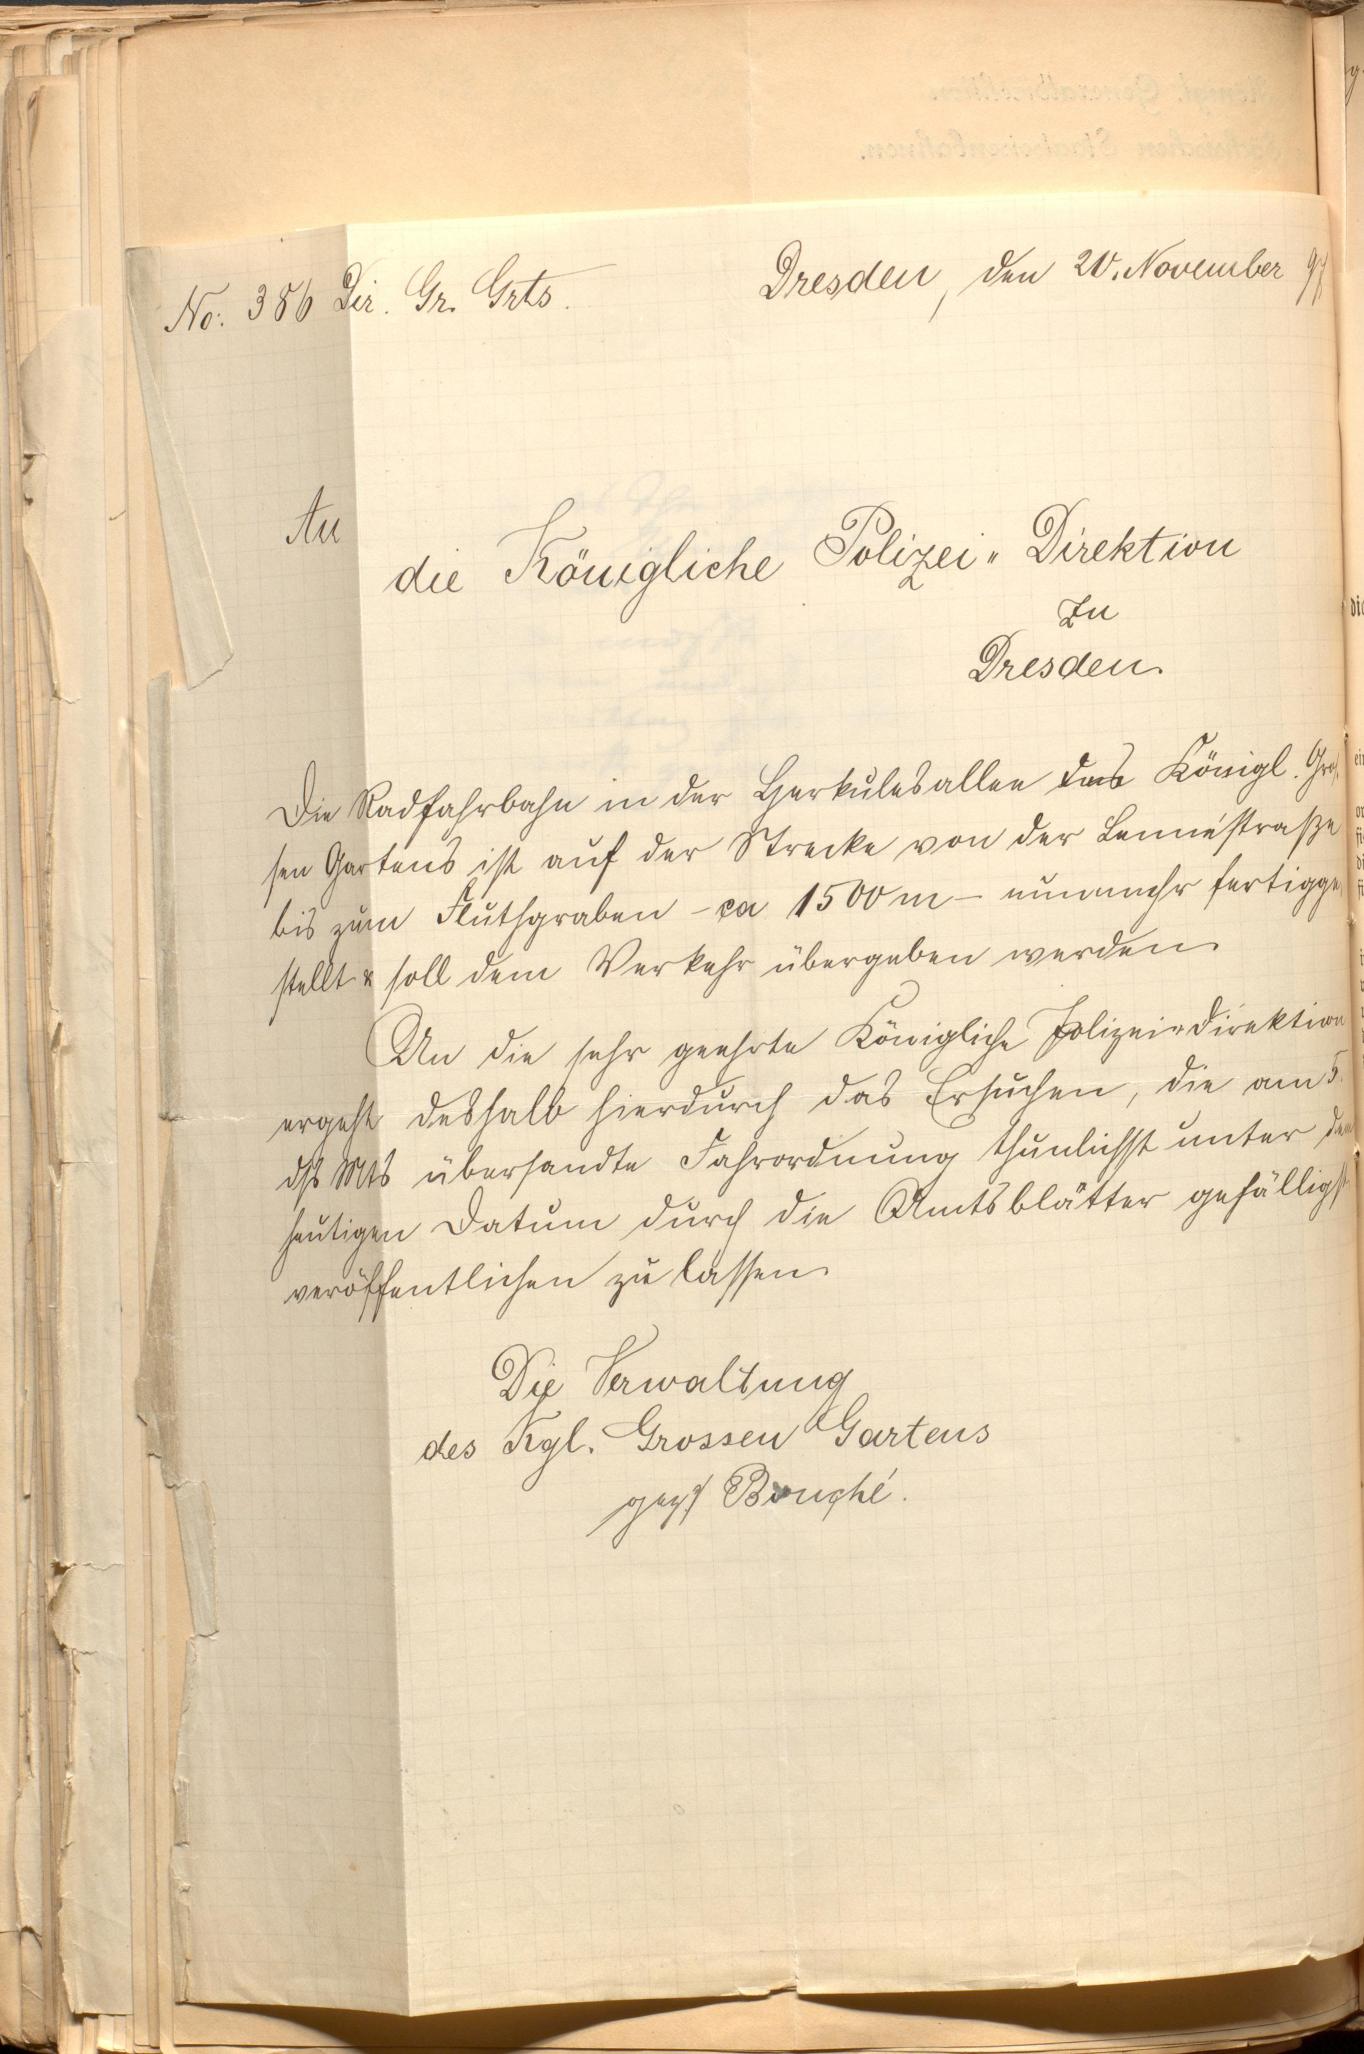 No: 386 Dir. Gr. Grts.
Dresden, den 20. November 97
An
die Königliche Polizei-Direktion
zu
Dresden.
Die Radfahrbahn in der Herkulesallee des Königl. Gros-
sen Gartens ist auf der Strecke von der Lennéstraße
bis zum Fluthgraben - ca 1500 m - nunmehr fertigge-
stellt & soll dem Verkehr übergeben werden.
An die sehr geehrte Königliche Polizei-Direktion
ergeht deshalb hierdurch das Ersuchen, die am 5.
dss Mts übersandte Fahrordnung thunlichst unter dem
heutigen Datum durch die Amtsblätter gefälligst
veröffentlichen zu lassen.
Die Verwaltung
des Kgl. Grossen Gartens
gez. Bouché.